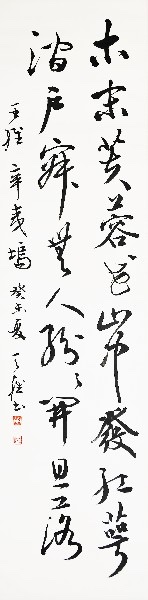 木末芙蓉花山中發红萼
澗戶寂無人紛紛開且落
王維辛夷塢癸未夏